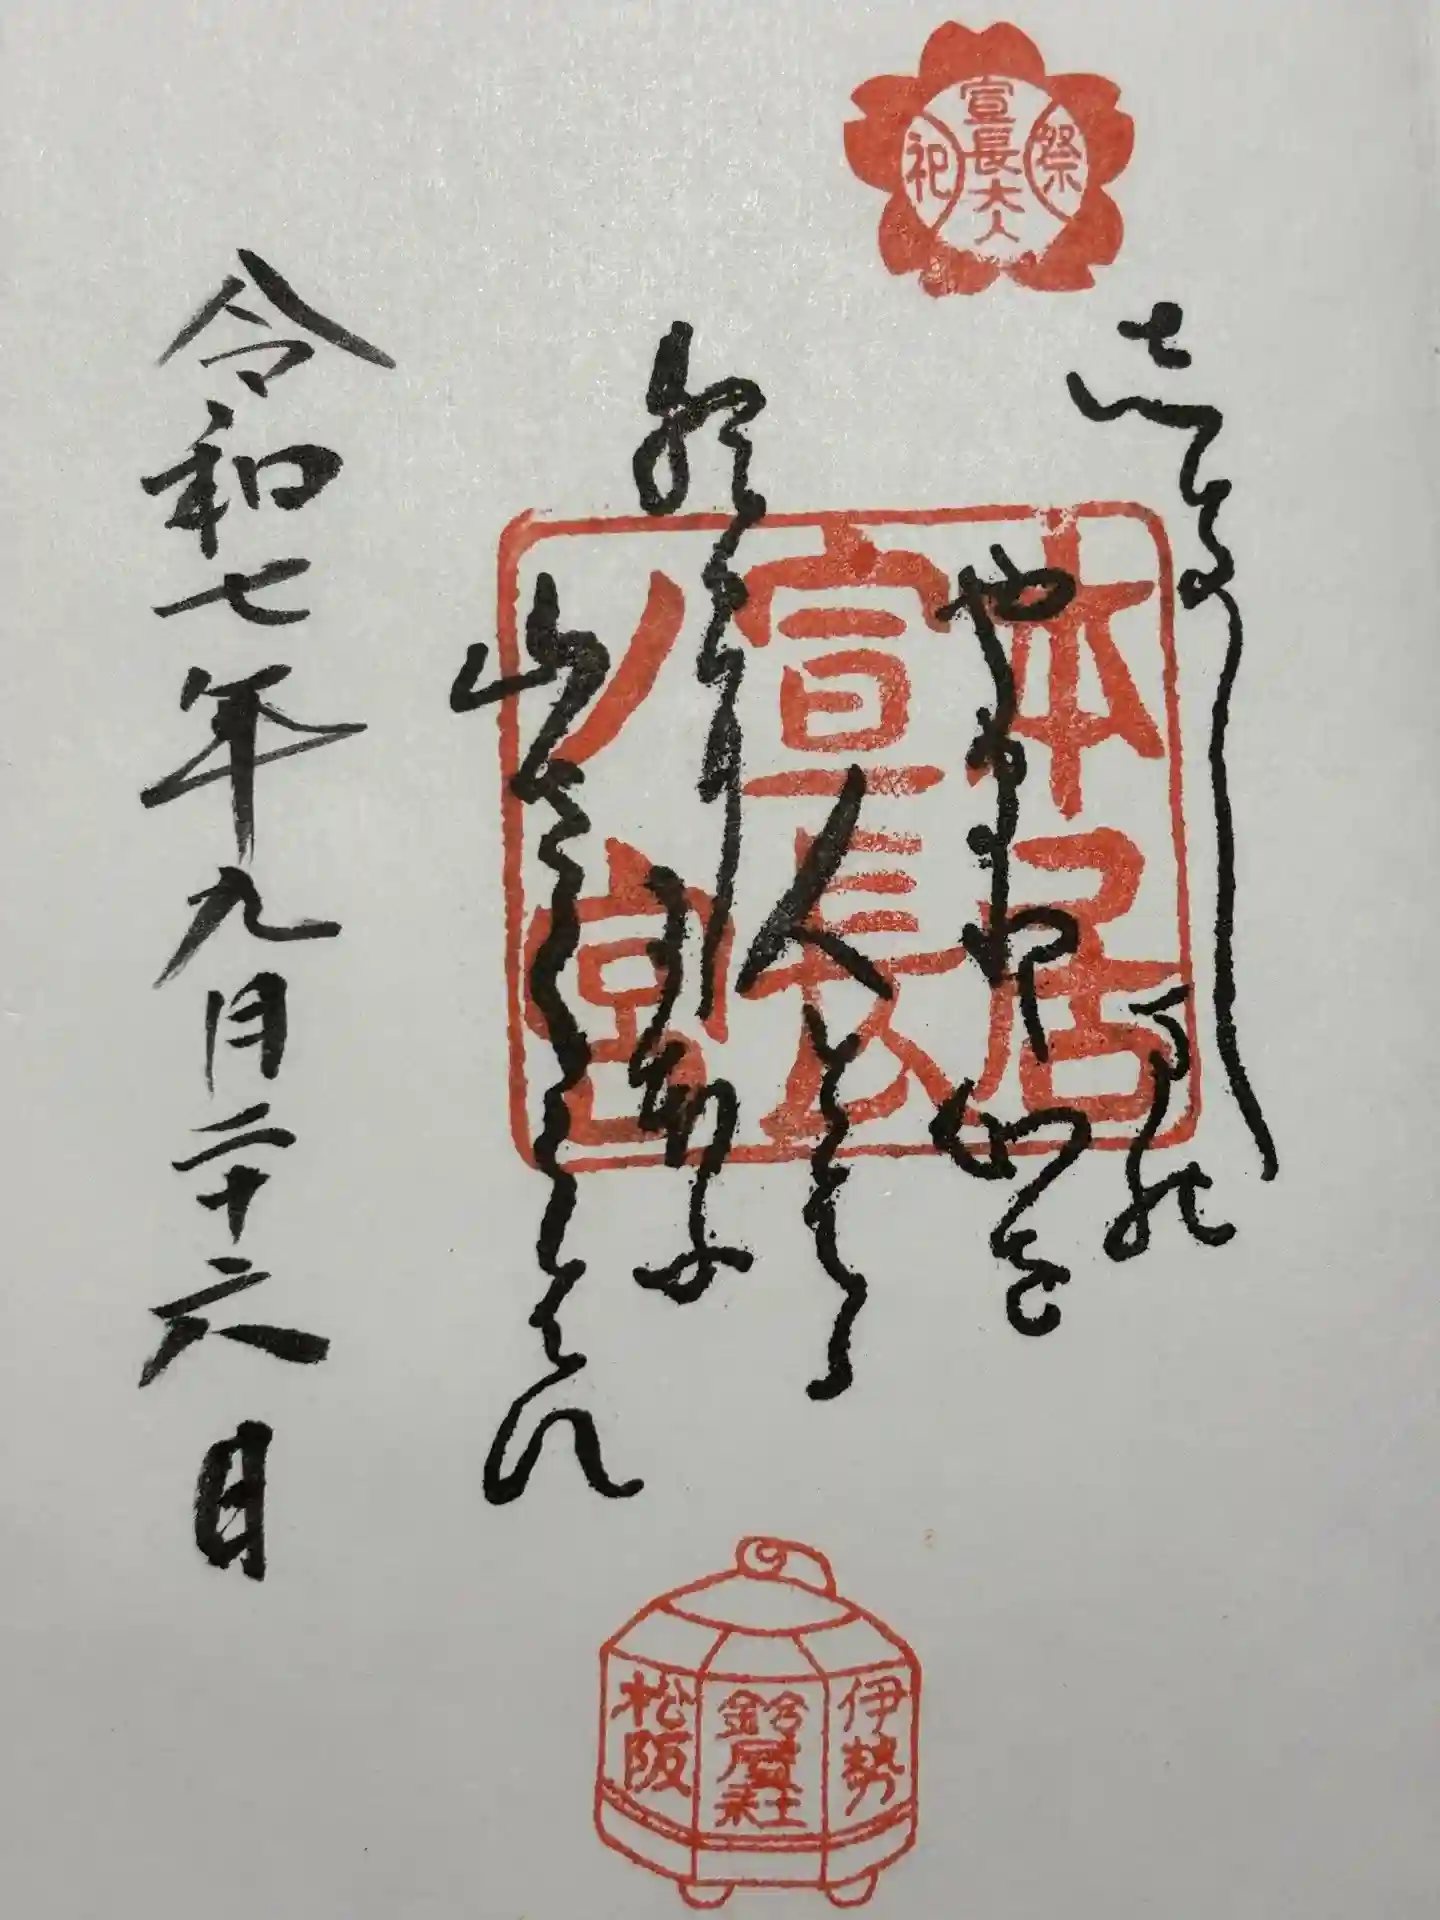 宣長大人
祭祀
しきしまの
やまとこころを
人とはは
朝日ににほふ
山さくらはな
本居
宣長
ノ宮
令和七年九月二十六日
伊勢
鈴屋社
松阪